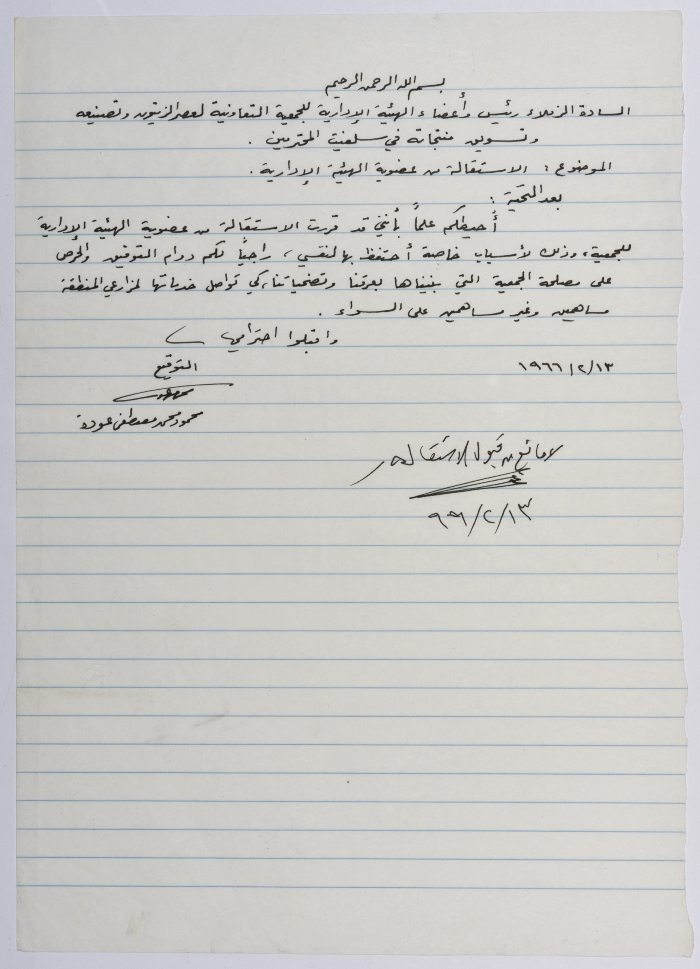 بسم الله الرحمن الرحيم
السادة الزملاء رئيس وأعضاء الهيئة الإدارية للجمعية التعاونية لعصر الزيتون وتصنيعه
وتسويق منتجاته في سلفيت المحترمين .
الموضوع : الاستقالة من عضوية الهيئة الإدارية .
بعد التحية :
أحيطكم علماً بأنني قد قررت الاستقالة من عضوية الهيئة الإدارية
للجمعية، وذلك لأسباب خاصة أحتفظ بها لنفسي، راجياً لكم دوام التوفيق والحرص
على مصلحة الجمعية التي بنيناها بعرقنا وتضحياتنا، كي تواصل خدماتها لمزارعي المنطقة
مساهمين وغير مساهمين على السواء .
واقبلوا احترامي
١٩٦٦/٢/١٣
التوقيع
محمود محمد مصطفى عودة
لا مانع من قبول الاستقالة
/٢/١٣